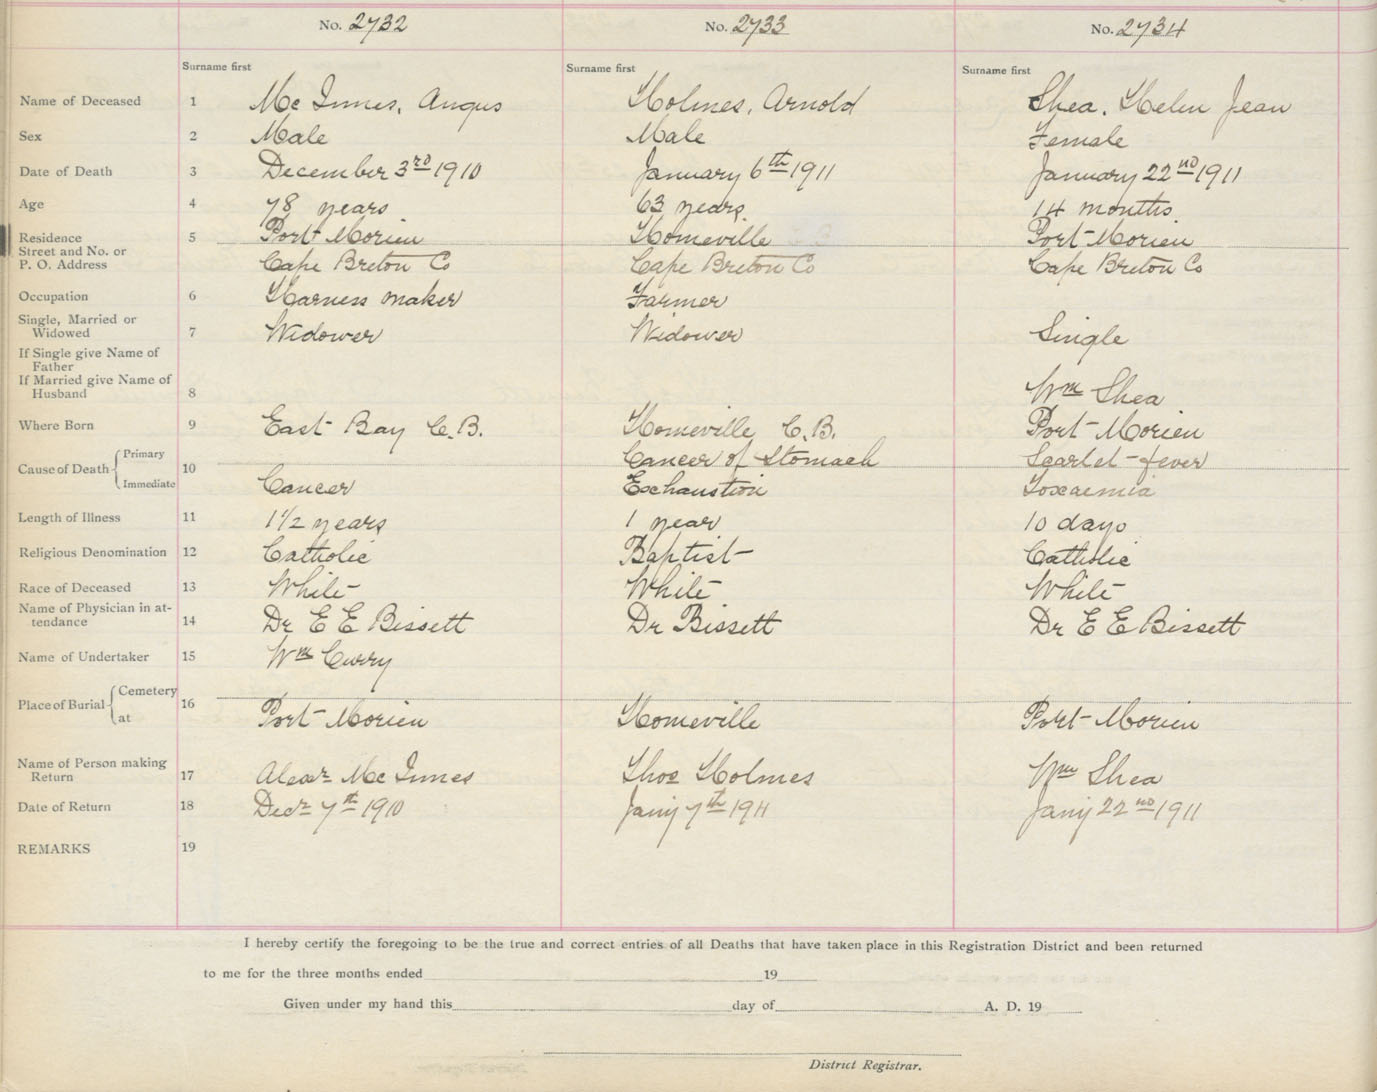 No. 2732 No. 2733 No. 2734
Surname first Surname first Surname first
Name of Deceased 1 Mc Innes, Angus Holmes, Arnold Shea, Helen Jean
Sex 2 Male Male Female
Date of Death 3 December 3rd 1910 January 6th 1911 January 22nd 1911
Age 4 78 years 63 years 14 months
Residence 5 Port Morien Homeville Port Morien
Street and No. or
P. O. Address Cape Breton Co Cape Breton Co Cape Breton Co
Occupation 6 Harness maker Farmer
Single, Married or
Widowed 7 Widower Widower Single
If Single give Name of
Father
If Married give Name of
Husband 8 Wm Shea
Where Born 9 East Bay C.B. Homeville C.B. Port Morien
Primary Cancer of Stomach Scarlet-fever
Cause of Death 10
Immediate Cancer Exhaustion Toxaemia
Length of Illness 11 1 1/2 years 1 year 10 days
Religious Denomination 12 Catholic Baptist Catholic
Race of Deceased 13 White White White
Name of Physician in at-
tendance 14 Dr E E Bissett Dr Bissett Dr E E Bissett
Name of Undertaker 15 Wm Curry
Cemetery
Place of Burial 16
at Port Morien Homeville Port Morien
Name of Person making
Return 17 Alexr Mc Innes Thos Holmes Wm Shea
Date of Return 18 Decr 7th 1910 Jany 7th 1911 Jany 22nd 1911
REMARKS 19
I hereby certify the foregoing to be the true and correct entries of all Deaths that have taken place in this Registration District and been returned
to me for the three months ended 19
Given under my hand this day of A. D. 19
District Registrar.